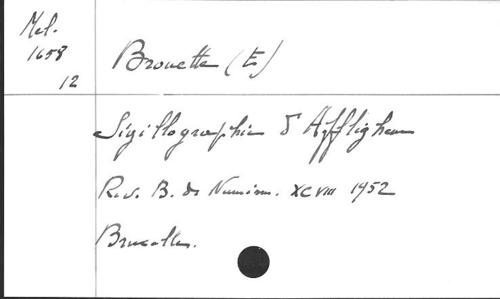 Mel.
1658
12
Brouette (E)
Sigillographie d'Afflighem
Rev. B. de Numism. XCVIII 1952
Bruxelles.